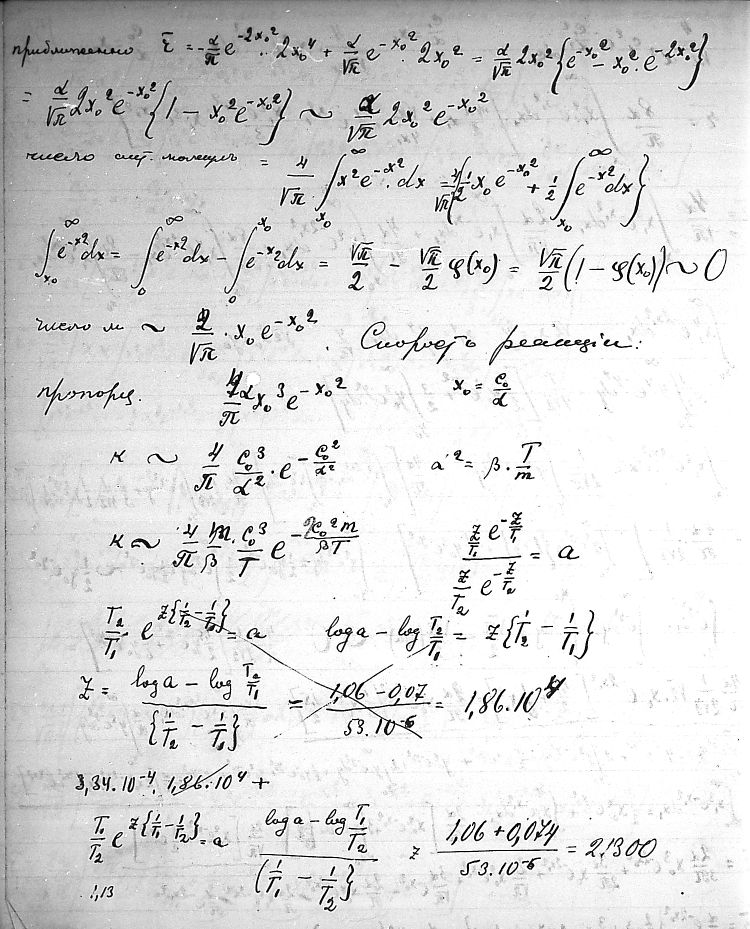 приближенно \bar{r} = -\frac{α}{π} e^{-2x_0^2} · 2x_0^4 + \frac{α}{\sqrt{π}} e^{-x_0^2} · 2x_0^2 = \frac{α}{\sqrt{π}} 2x_0^2 {e^{-x_0^2} - x_0^2 · e^{-2x_0^2}}
= \frac{α}{\sqrt{π}} 2x_0^2 e^{-x_0^2} {1 - x_0^2 e^{-x_0^2}} ~ \frac{α}{\sqrt{π}} 2x_0^2 e^{-x_0^2}
число акт. молекул = \frac{4}{\sqrt{π}} \int_{x_0}^{∞} x^2 e^{-x^2} · dx = \frac{4}{\sqrt{π}} {\frac{1}{2} x_0 e^{-x_0^2} + \frac{1}{2} \int_{x_0}^{∞} e^{-x^2} dx}
\int_{x_0}^{∞} e^{-x^2} dx = \int_0^{∞} e^{-x^2} dx - \int_0^{x_0} e^{-x^2} dx = \frac{\sqrt{π}}{2} - \frac{\sqrt{π}}{2} φ(x_0) = \frac{\sqrt{π}}{2} (1 - φ(x_0)) ~ 0
число м ~ \frac{2}{\sqrt{π}} · x_0 e^{-x_0^2}. Скорость реакціи:
пропорц. \frac{4}{π} α x_0^3 e^{-x_0^2} x_0 = \frac{c_0}{α}
κ ~ \frac{4}{π} \frac{c_0^3}{α^2} · e^{-\frac{c_0^2}{α^2}} α^2 = β · \frac{T}{m}
κ ~ \frac{4}{π} \frac{m}{β} · \frac{c_0^3}{T} e^{-\frac{c_0^2 m}{βT}} \frac{\frac{z}{T_1} e^{-\frac{z}{T_1}}}{\frac{z}{T_2} e^{-\frac{z}{T_2}}} = a
\frac{T_2}{T_1} · e^{z{\frac{1}{T_2} - \frac{1}{T_1}}} = a log a - log \frac{T_2}{T_1} = z{\frac{1}{T_2} - \frac{1}{T_1}}
z = \frac{log a - log \frac{T_2}{T_1}}{{\frac{1}{T_2} - \frac{1}{T_1}}} = \frac{1,06 - 0,07}{53.10^{-6}} = 1,86.10^4
3,34.10^{-4} . 1,86.10^4 +
\frac{T_1}{T_2} e^{z{\frac{1}{T_1} - \frac{1}{T_2}}} = a \frac{log a - log \frac{T_1}{T_2}}{{\frac{1}{T_1} - \frac{1}{T_2}}} z \frac{1,06 + 0,074}{53.10^{-6}} = 21300
1,13